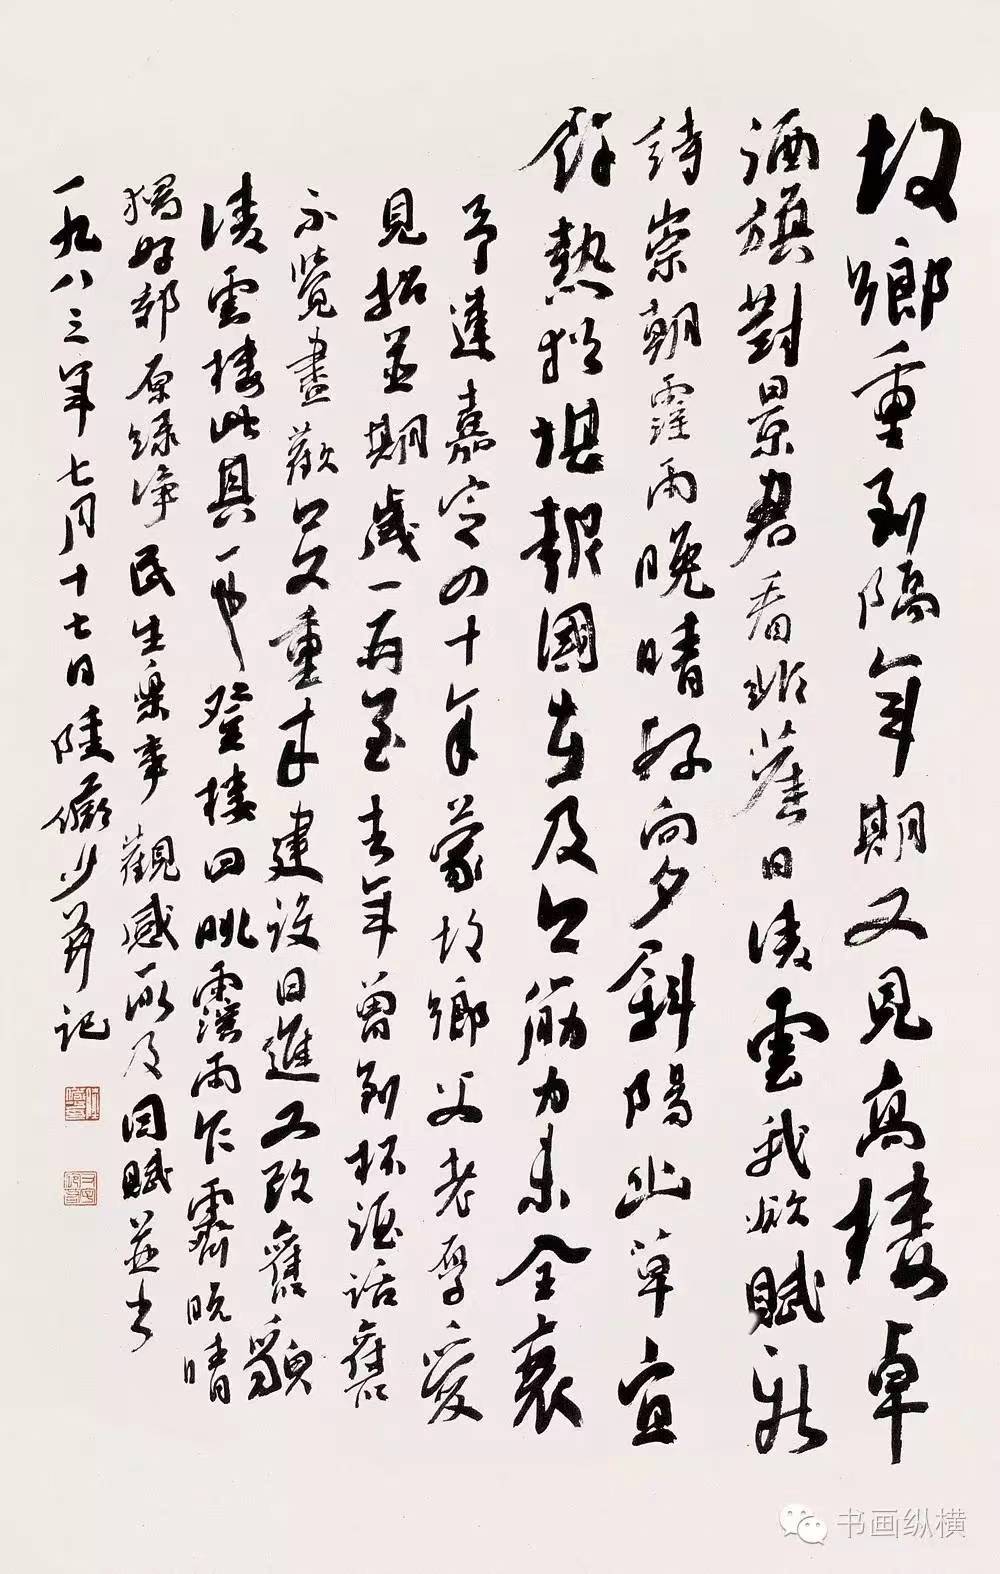 故鄉重到隔年期又見高樓卓
酒旗對景君看非舊日凌雲我欲賦新
詩崇朝霪雨晚晴好向夕斜陽止草宜
餘熱猶堪報國在及公筋力未全衰
予違嘉定四十年蒙故鄉父老厚愛
見招並期歲一再至去年曾到杯酒話舊
不覺盡歡今又重來建設日進又改舊貌
凌雲樓此具一也登樓四眺霪雨乍霽晚晴
獨好郊原綠淨民生樂事觀感所及因賦並書
一九八三年七月十七日陸儼少并記
书画纵横